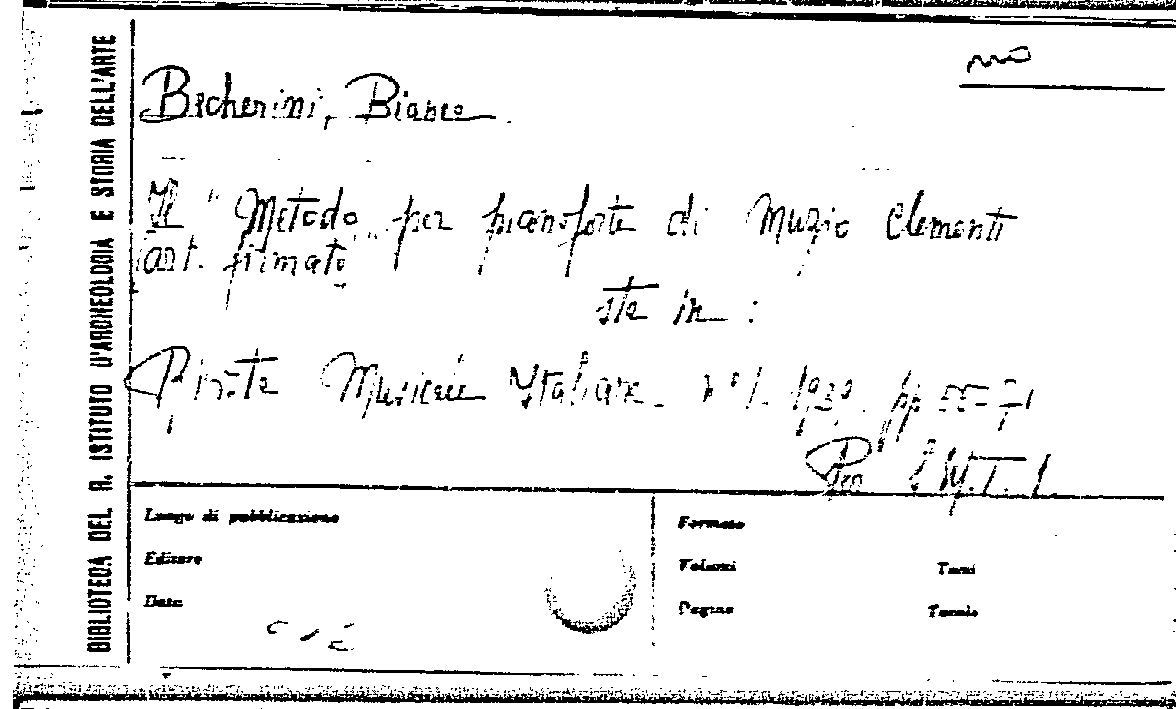 BIBLIOTECA DEL R. ISTITUTO D'ARCHEOLOGIA E STORIA DELL'ARTE
Becherini, Bianca
Il "Metodo" per pianoforte di Muzio Clementi
(art. firmato)
sta in:
Musicale Italiana - n° 1. 1939. pp 55-71
Luogo di pubblicazione
Editore
Data
Formato
Volumi Tomi
Pagine Tavole